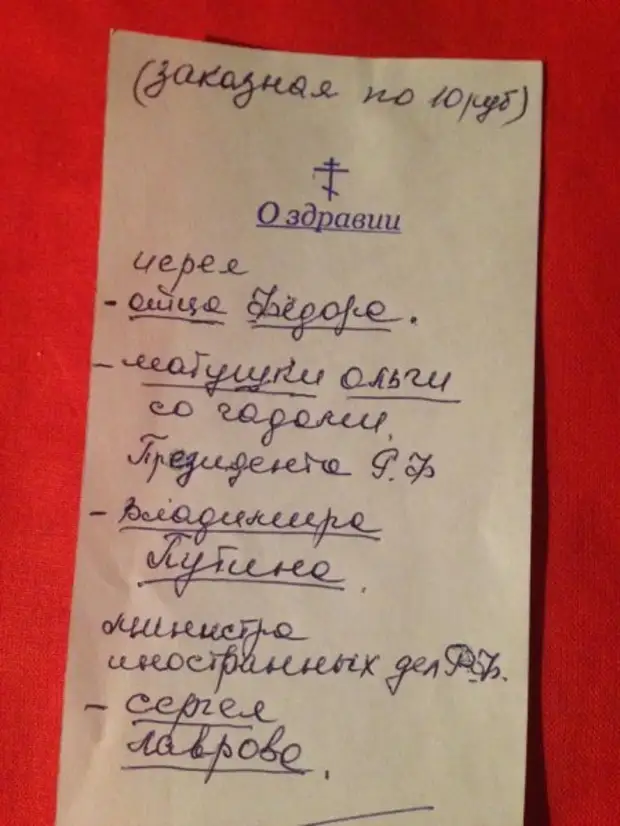 (заказная по 10 руб)
О здравии
иерея
- отца Фёдора.
- матушки Ольги
со чадами,
Президента Р.Ф
- Владимира
Путина.
министра
иностранных дел Р.Ф.
- Сергея
Лаврова.